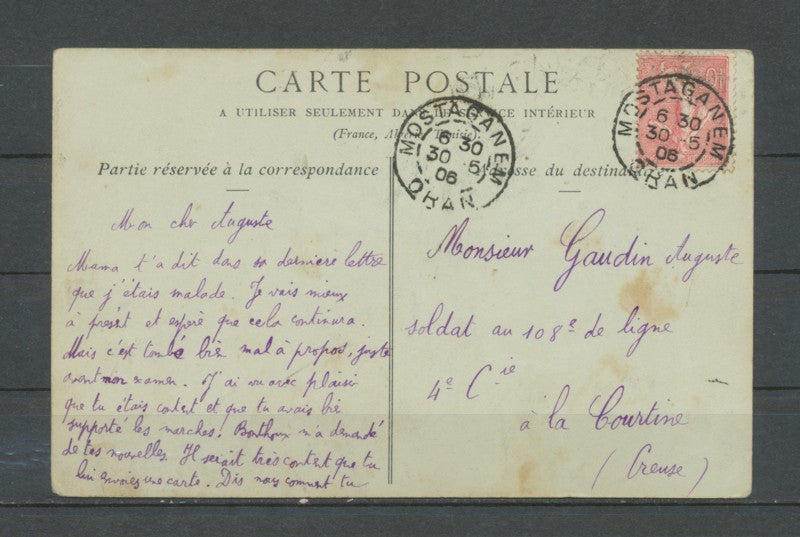 CARTE POSTALE
A UTILISER SEULEMENT DANS LE SERVICE INTÉRIEUR
(France, Algérie, Tunisie).
Partie réservée à la correspondance
Adresse du destinataire
MOSTAGANEM
6 30
30 -5
06
ORAN
MOSTAGANEM
6 30
30 -5
06
ORAN
Mon cher Auguste
Mama t'a dit dans sa derniere lettre
que j'étais malade. Je vais mieux
à présent et espère que cela continura.
Mais c'est tombé bien mal à propos, juste
avant mon examen. J'ai vu avec plaisir
que tu étais content et que tu avais bien
supporté les marches. m'a demandé
de tes nouvelles. Il serait très content que tu
lui envoies une carte. Dis nous comment tu
Monsieur Gaudin Auguste
soldat au 108e de ligne
4e Cie
à la Courtine
(Creuse)